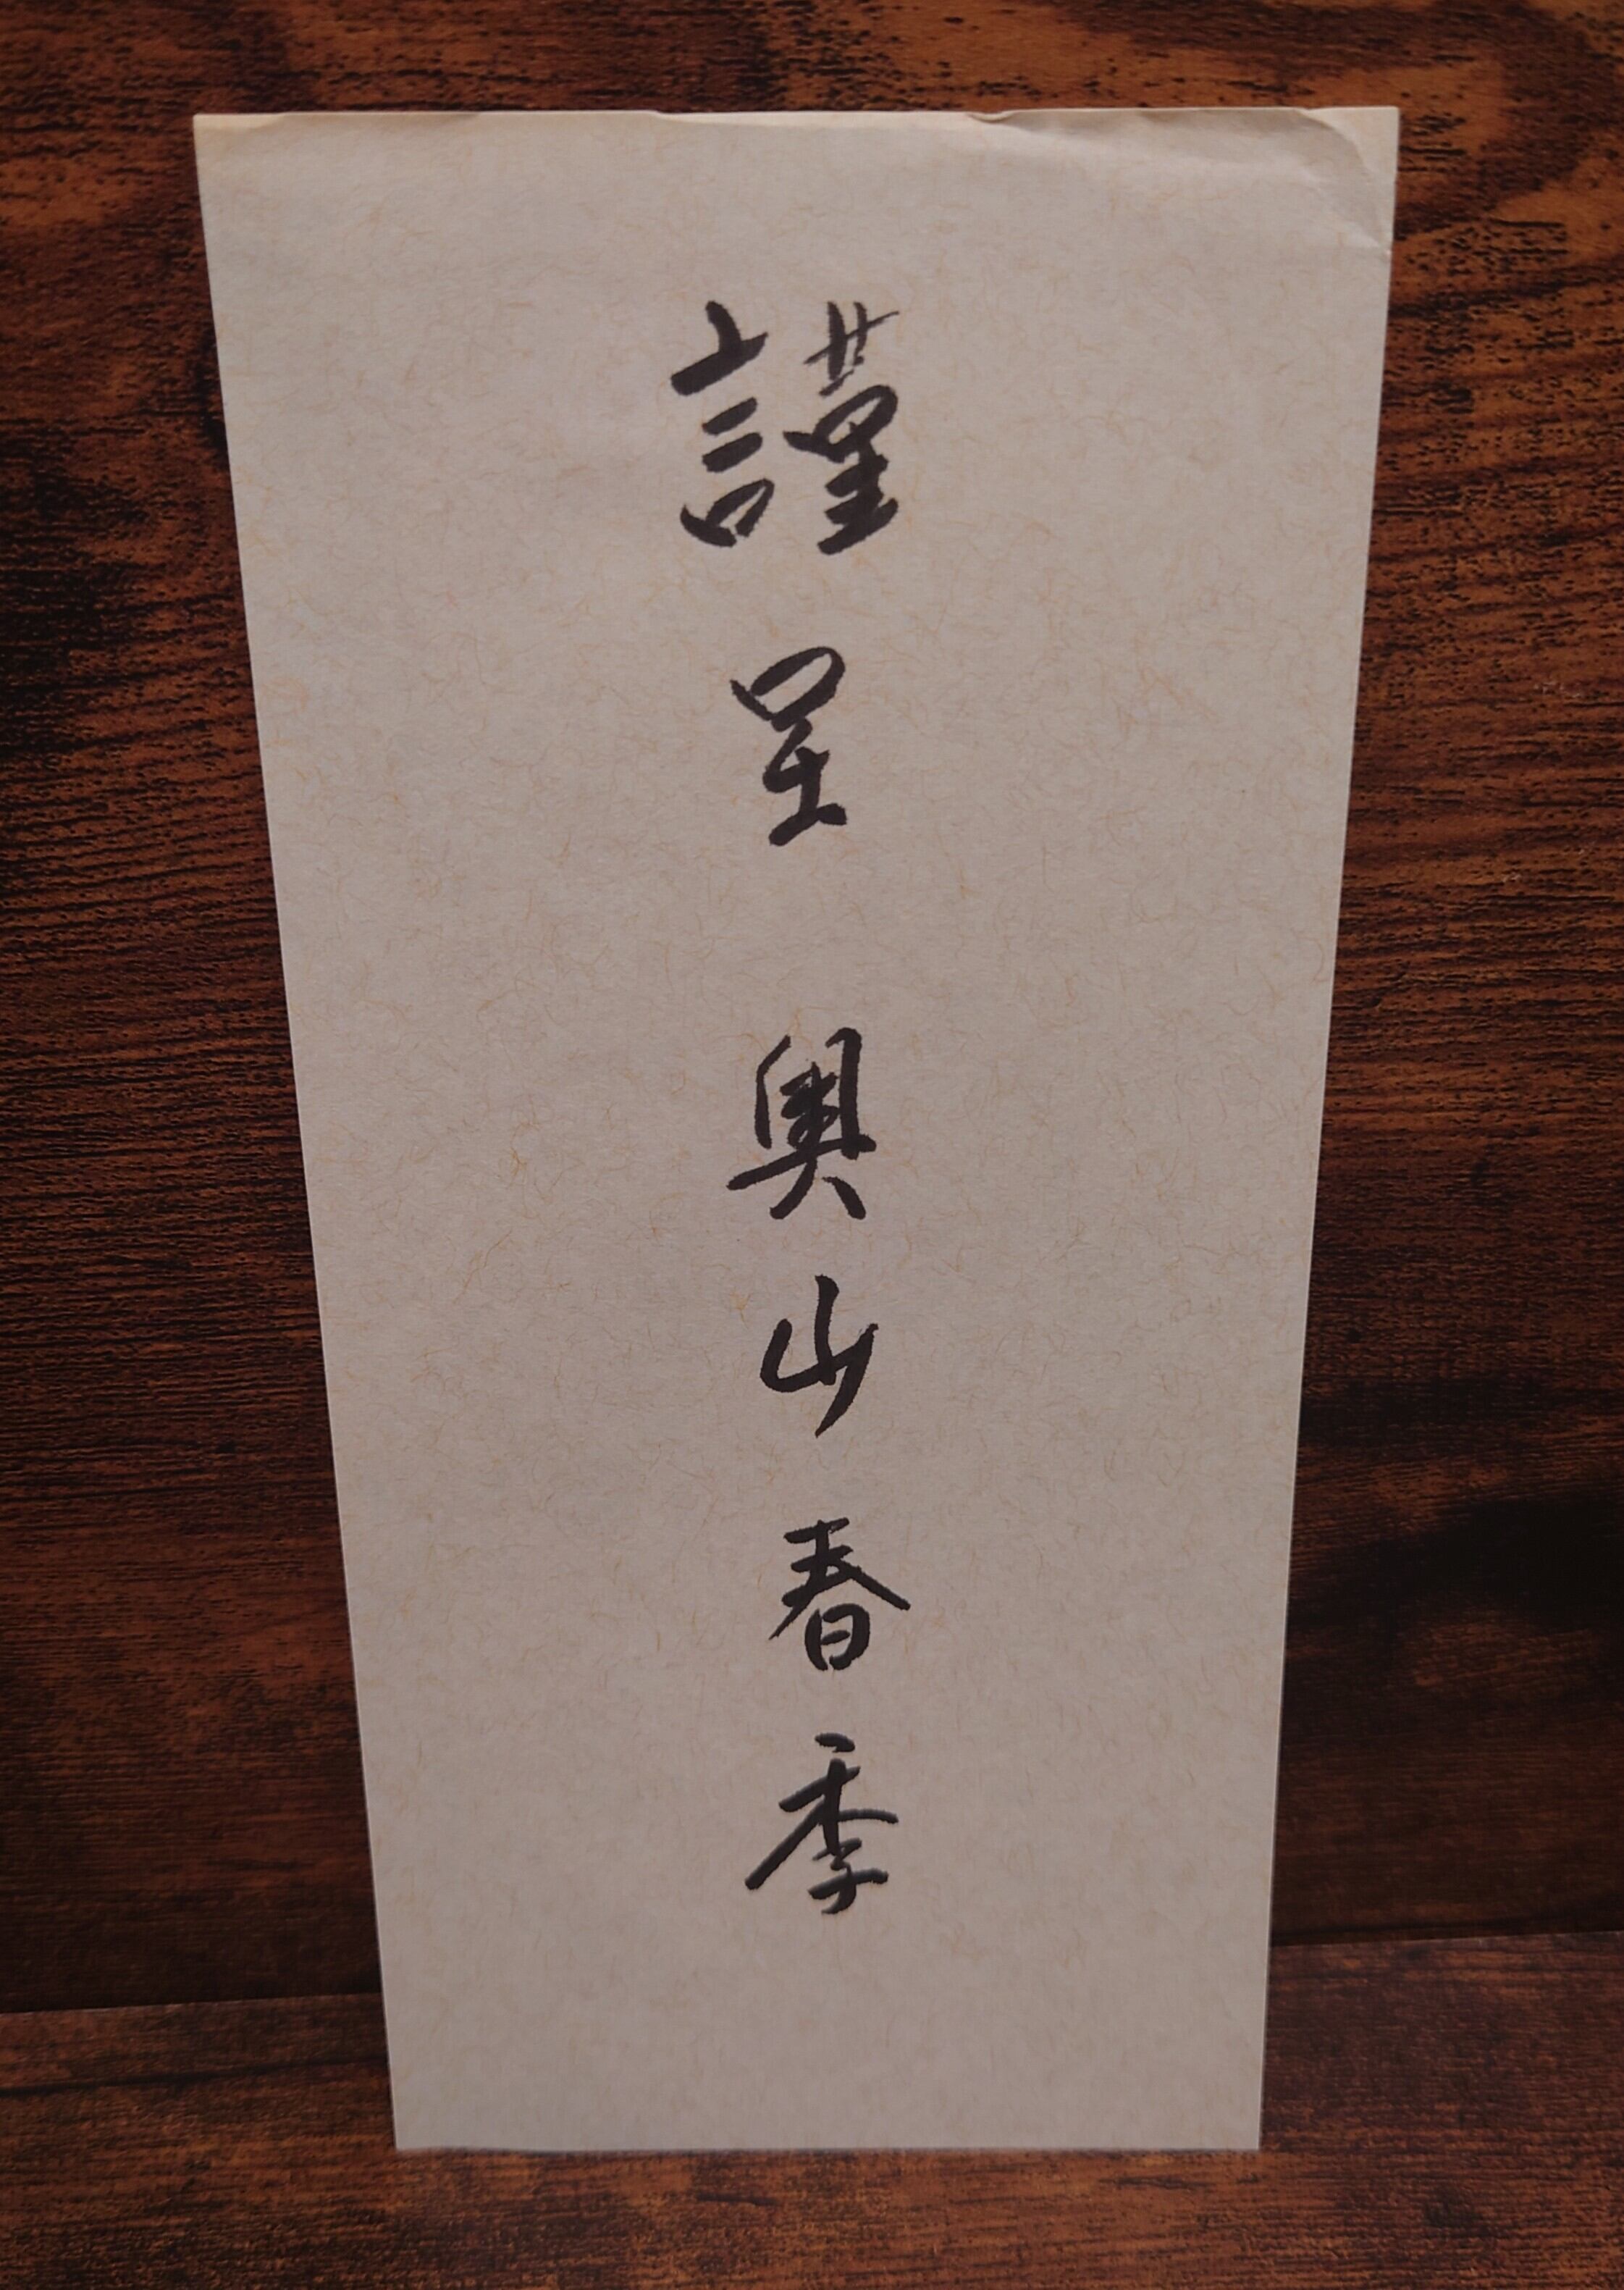 謹呈 奥山春季